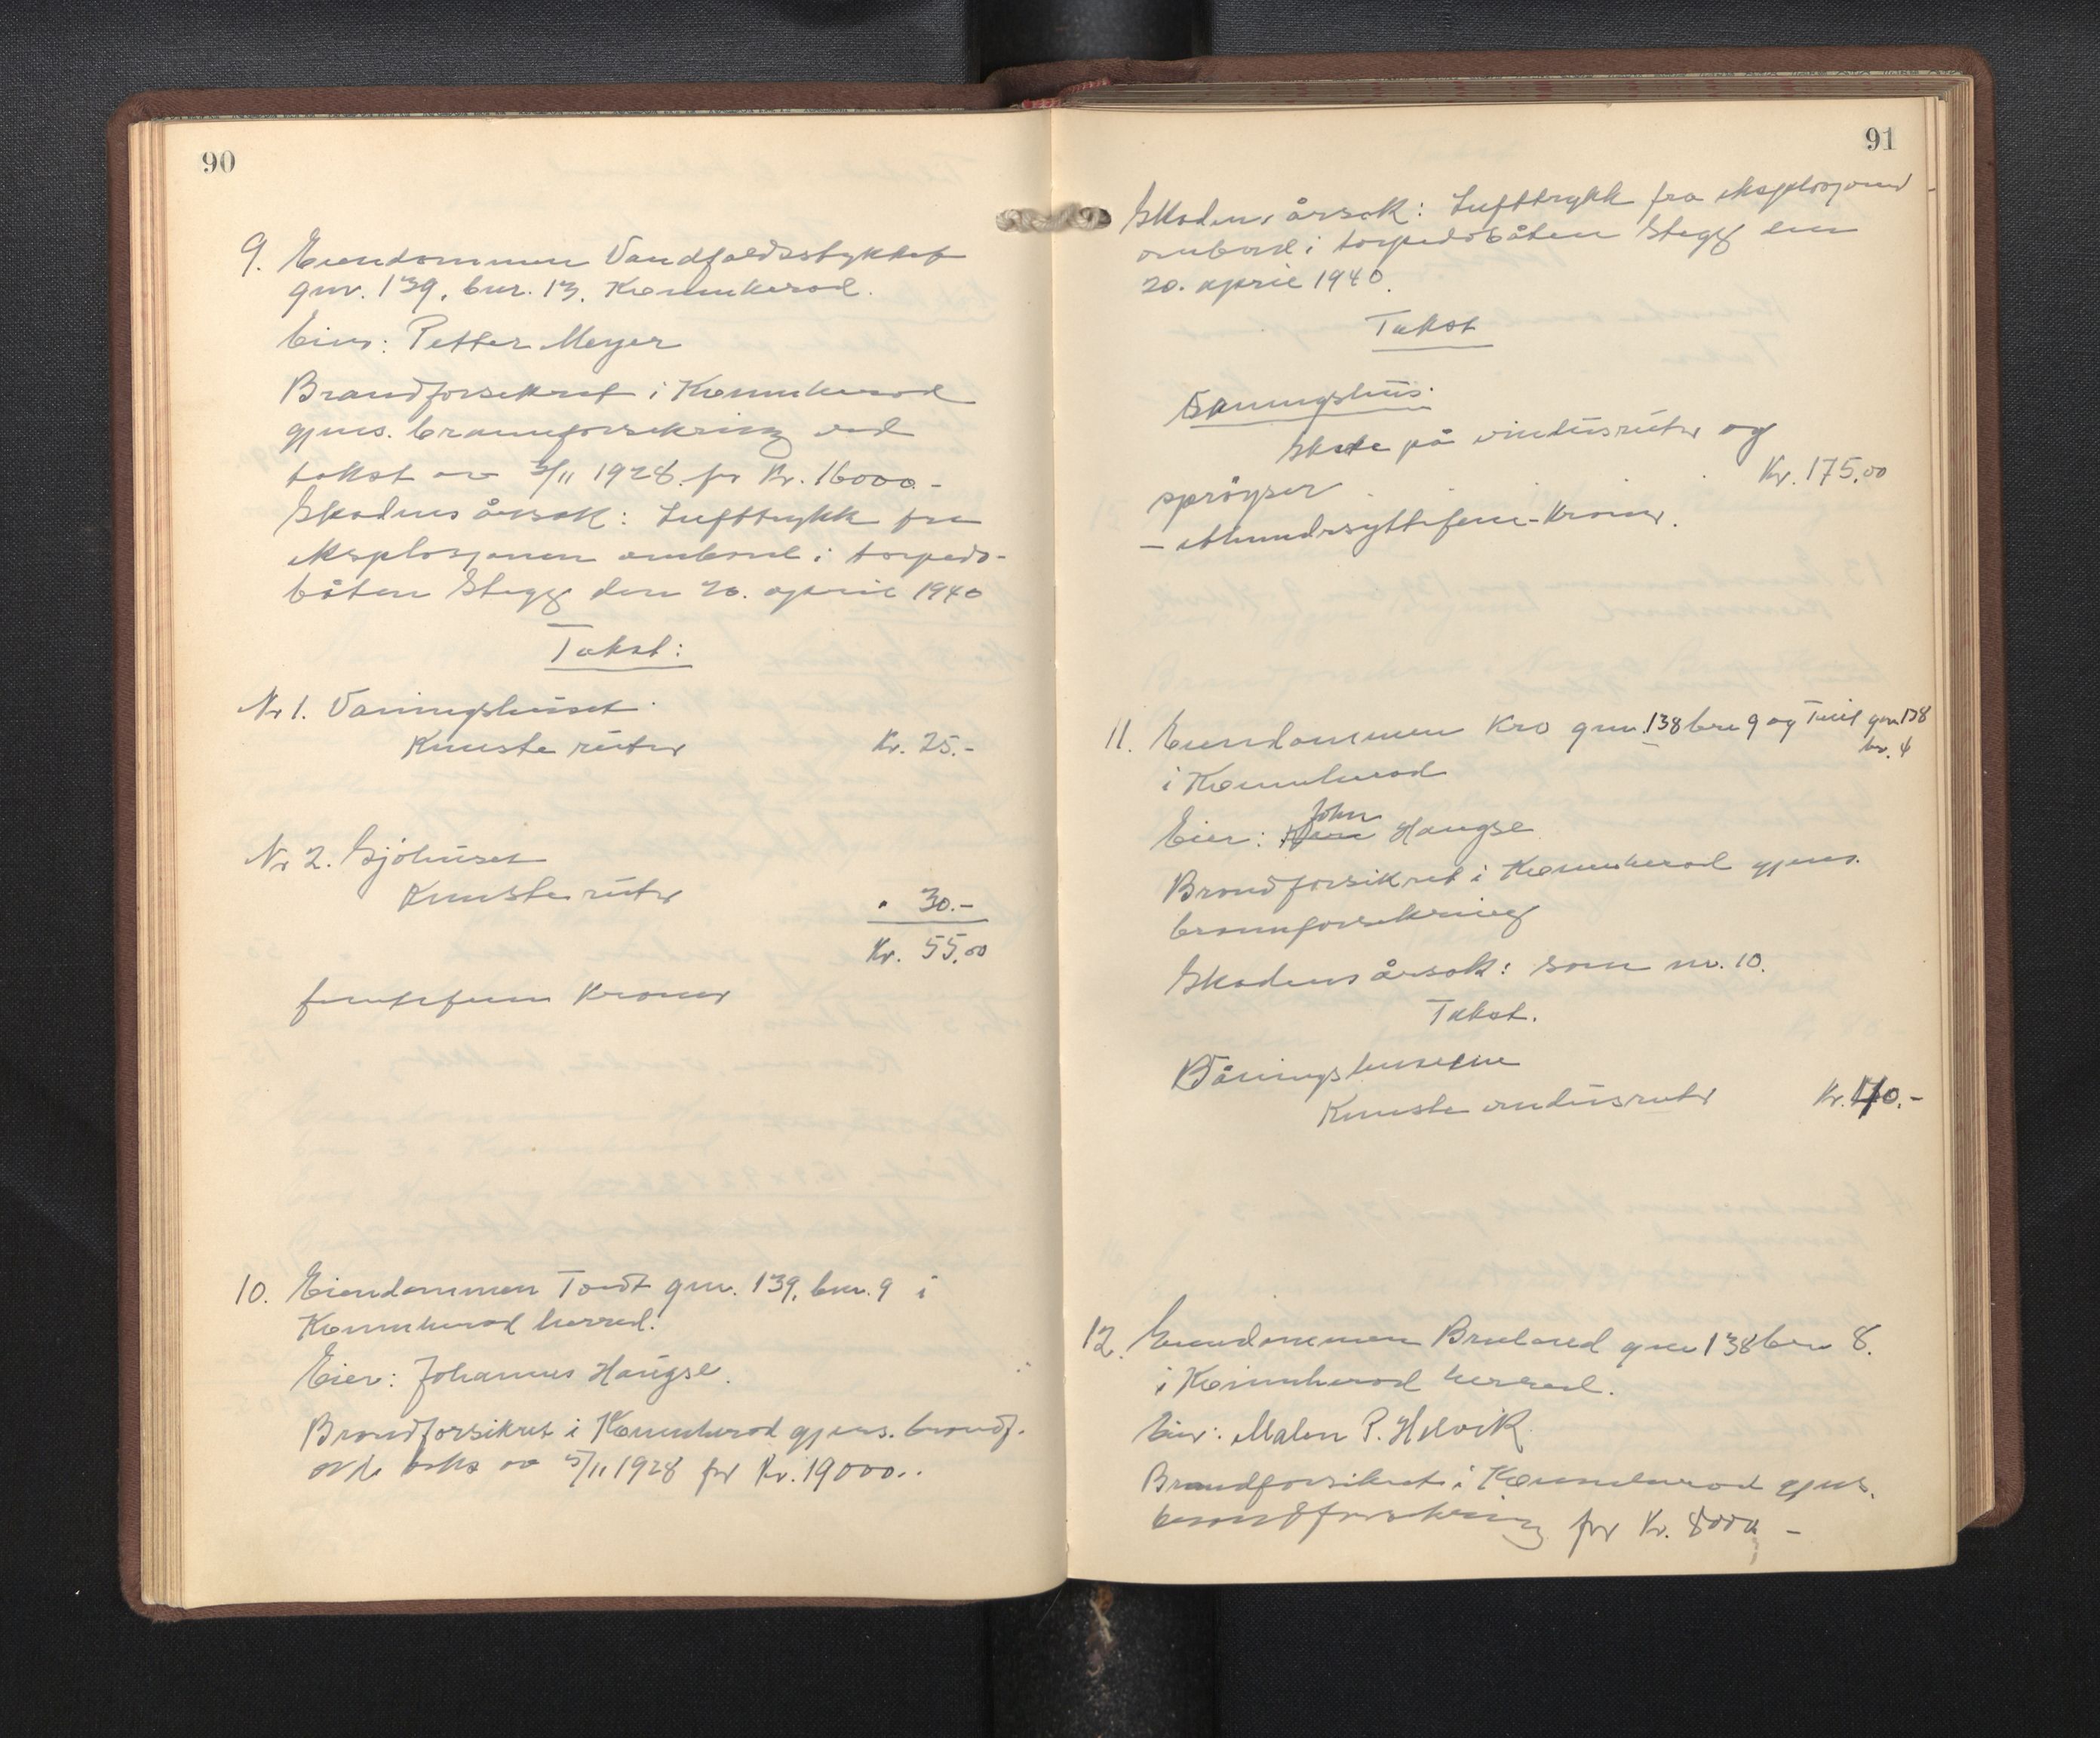 90
9. Eiendommen Vandfaldsstykket
gnr. 139, bnr. 13, Kvinnherad.
Eier: Petter Meyer
Brandforsikret i Kvinnherad
gjens. brannforsikring ved
takst av 3/11 1928 for Kr. 16000.-
Skadens årsak: Lufttrykk fra
eksplosjonen ombord i torpedo-
båten Stegg den 20. april 1940
Takst:
Nr 1. Vaningshuset
Knuste ruter Kr. 25.-
Nr 2. Sjöhuset
Knuste ruter " 30.-
Kr. 55,00
femtifem Kroner
10. Eiendommen Tondt gnr. 139, bnr. 9 i
Kvinnherad herred.
Eier: Johannes Haugse.
Brandforsikret i Kvinnherad gjens. brandf.
takst av 5/11 1928 for Kr. 19000..
91
Skadens årsak: Lufttrykk fra eksplosjonen
ombord i torpedobåten Stegg den
20. april 1940.
Takst
Vaningshus:
Skade på vindusruter og
sprögser Kr. 175,00
- ethundresyttifem - Kroner.
11. Eiendommen Kro gnr. 138 bnr 9 og gnr 138
bnr. 4
i Kvinnherad
John
Eier: Haugse
Brandforsikret i Kvinnherad gjens.
brannforsikring
Skadens årsak: som nr. 10.
Takst.
Våningshusene
Knuste vindusruter Kr. 40.-
12. Eiendommen Bruland gnr 138 bnr 8.
i Kvinnherad herred.
Eier: Malen P. Helvik
Brandforsikret i Kvinnherad gjens.
brandforsikring for Kr. 8000 -